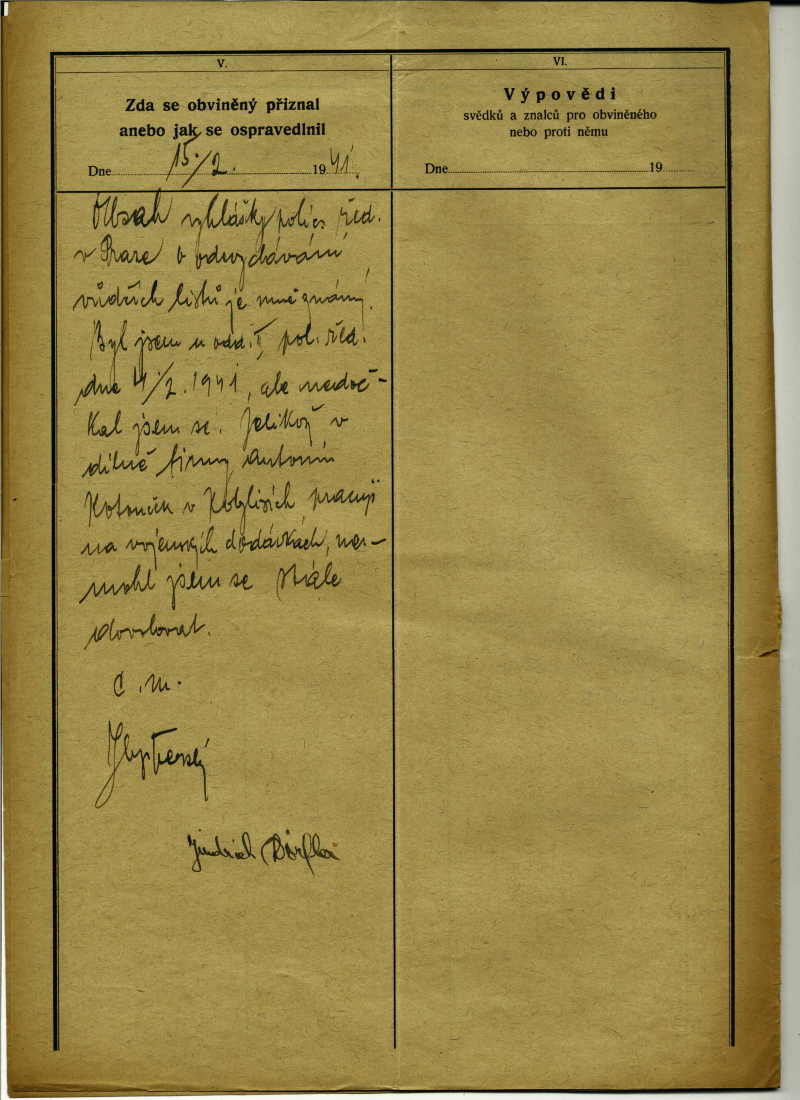 V.
Zda se obviněný přiznal
anebo jak se ospravedlnil
Dne 15./2. 1941.
Obsah vyhlášky polic. řed.
v Praze o odevzdávání
vůdčích listů je mně známý.
Byl jsem u odd. pol. řed.
dne 4./2. 1941, ale nedoč-
kal jsem se. Jelikož v
dílně firmy Antonín
v Kobylisích pracuji
na vojenských dodávkách, ne-
mohl jsem se stále
dovolovat.
č. m.
Jindřich
VI.
Výpovědi
svědků a znalců pro obviněného
nebo proti němu
Dne 19